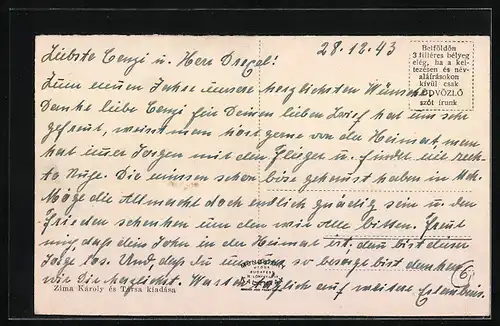 28.12.43
Liebste Cenzi u. Herr Drexel!
Belföldön
3 filléres bélyeg
elég, ha a kel-
tezésen és név-
aláírásokon
kívül csak
ÜDVÖZLŐ
szót írunk
Zum neuen Jahre unsere herzlichsten Wünsche.
Danke liebe Cenzi für Deinen lieben Brief hat uns sehr
gefreut, weisst man hört gerne von der Heimat man
hat immer Sorgen mit den Flieger u. findet nie rech-
te Ruhe. Die müssen schon böse gehaust haben in
Möge die Allmacht doch endlich gnädig sein u. den
Frieden schenken um den wir Alle bitten. Freut
mich, daß dein Sohn in der Heimat ist, dann bist dieser
Sorge los. Und, daß Du um uns so besorgt bist danken
wir Dir herzlichst. Warten täglich auf weitere Erlaubnis.
Zima Károly és Társa kiadása
6